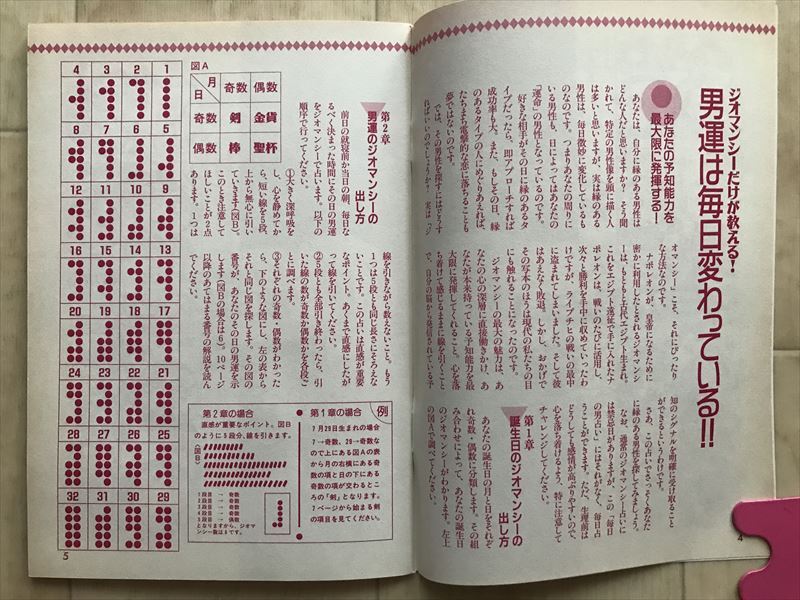 ジオマンシーだけが教える!
男運は毎日変わっている!!
あなたの予知能力を
最大限に発揮する!
あなたは、自分に縁のある男性は
どんな人だと思いますか? そう聞
かれて、特定の男性像を頭に描く人
は多いと思いますが、実は縁のある
男性は、毎日微妙に変化しているも
のなのです。つまりあなたの周りに
いる男性も、日によってはあなたの
「運命」の男性となっているのです。
好きな相手がその日に縁のあるタ
イプだったら、即アプローチすれば
成功率も大。また、もしその日、縁
のあるタイプの人にめぐりあえれば、
たちまち電撃的な恋に落ちることも
夢ではないのです。
では、その男性を探すにはどうす
ればいいのでしょうか? 実は「ジ
オマンシー」こそ、それにぴったり
な方法なのです。
ナポレオンが、皇帝になるために
密かに利用したとされるジオマンシ
ーは、もともと古代エジプト生まれ。
これをエジプト遠征で手に入れたナ
ポレオンは、戦いのたびに活用し、
次々と勝利を手中に収めていったわ
けですが、ライプチヒの戦いの最中
に盗まれてしまいました。そして彼
はあえなく敗退。しかし、おかげで
その写本のほうは現代の私たちの目
にも触れることになったのです。
ジオマンシーの最大の魅力は、あ
なたの心の深層に直接働きかけ、あ
なたが本来持っている予知能力を最
大限に発揮してくれること。心を落
ち着けて感じるままに線を引くこと
で、自分の脳から発信されている予
知のシグナルを明確に受け取ること
ができるというわけです。
さあ、この占いでさっそくあなた
に縁のある男性を探してみましょう。
なお、通常のジオマンシー占いに
は禁忌日がありますが、この「毎日
の男占い」にはそれがなく、毎日占
うことができます。ただ、生理前は
どうしても感情が高ぶりやすいので、
心を落ち着けるよう、特に注意して
チャレンジしてください。
第1章
誕生日のジオマンシーの
出し方
あなたの誕生日の月と日をそれぞ
れ奇数・偶数に分類します。その組
み合わせによって、あなたの誕生日
のジオマンシーがわかります。左上
の図Aで調べてください。
4
図A
月
日
奇数
偶数
奇数
剣
金貨
偶数
棒
聖杯
第2章
男運のジオマンシーの
出し方
前日の就寝前か当日の朝、毎日な
るべく決まった時間にその日の男運
をジオマンシーで占います。以下の
順序で行ってください。
①大きく深呼吸を
し、心を静めてか
ら、短い線を5段、
上から無心に引い
ていきます(図B)。
このとき注意して
ほしいことが2点
あります。1つは
線を引きながら数えないこと。もう
1つは5段とも同じ長さにそろえな
いことです。この占いは直感が重要
なポイント。あくまで直感にしたが
って線を引いてください。
②5段とも全部引き終わったら、引
いた線の数が奇数か偶数かを各段ご
とに調べます。
③それぞれの奇数・偶数がわかった
ら、下のような図にし、左の表から
それと同じ図を探します。その図の
番号が、あなたのその日の男運を示
します(図Bの場合は6)。10ページ
以降のあてはまる番号の解説を読ん
でください。
例
第1章の場合
7月29日生まれの場合
7→奇数、29→奇数な
ので上にある図Aの表
から月の右横にある奇
数の項と日の下にある
奇数の項が交わるとこ
ろの「剣」となります。
7ページから始まる剣
の項目を見てください。
第2章の場合
直感が重要なポイント。図B
のように5段分、線を引きます。
〈図B〉
1段目 → 奇数
2段目 → 奇数
3段目 → 奇数
4段目 → 奇数
5段目 → 偶数
となりますから、ジオマ
ンシー数は6です。
4 3 2 1
8 7 6 5
12 11 10 9
16 15 14 13
20 19 18 17
24 23 22 21
28 27 26 25
32 31 30 29
5